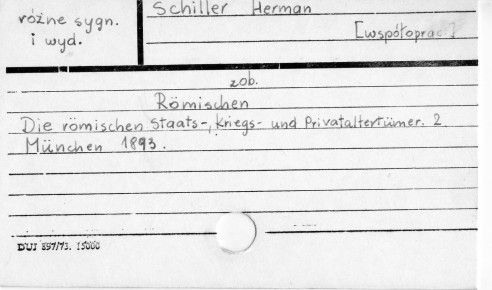 różne sygn.
i wyd.
Schiller Herman
[współoprac]
zob.
Römischen
Die römischen Staats-, Kriegs- und Privataltertümer. 2
München 1893.
DUJ 897/73. 15000